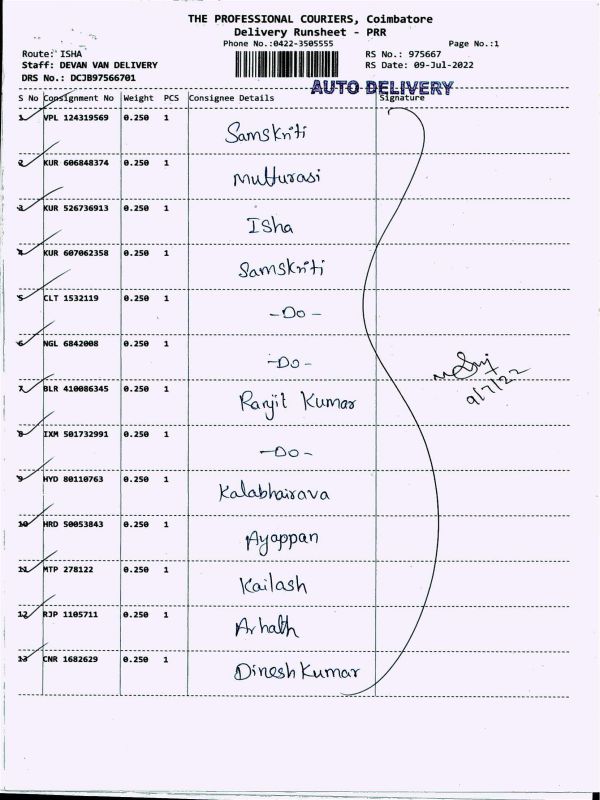 THE PROFESSIONAL COURIERS, Coimbatore
Delivery Runsheet - PRR
Phone No.:0422-3505555 Page No.:1
Route: ISHA RS No.: 975667
Staff: DEVAN VAN DELIVERY RS Date: 09-Jul-2022
DRS No.: DCJB97566701
AUTO DELIVERY
S No Consignment No Weight PCS Consignee Details Signature
1 VPL 124319569 0.250 1 Samskriti
2 KUR 606848374 0.250 1 Mutturasi
3 KUR 526736913 0.250 1 Isha
4 KUR 607062358 0.250 1 Samskriti
5 CLT 1532119 0.250 1 -Do-
6 NGL 6842008 0.250 1 -Do-
7 BLR 410086345 0.250 1 Ranjit Kumar
8 IXM 501732991 0.250 1 -Do-
9 HYD 80110763 0.250 1 Kalabhairava
10 HRD 50053843 0.250 1 Ayappan
11 MTP 278122 0.250 1 Kailash
12 RJP 1105711 0.250 1 Arhath
13 CNR 1682629 0.250 1 Dinesh Kumar
9/7/22